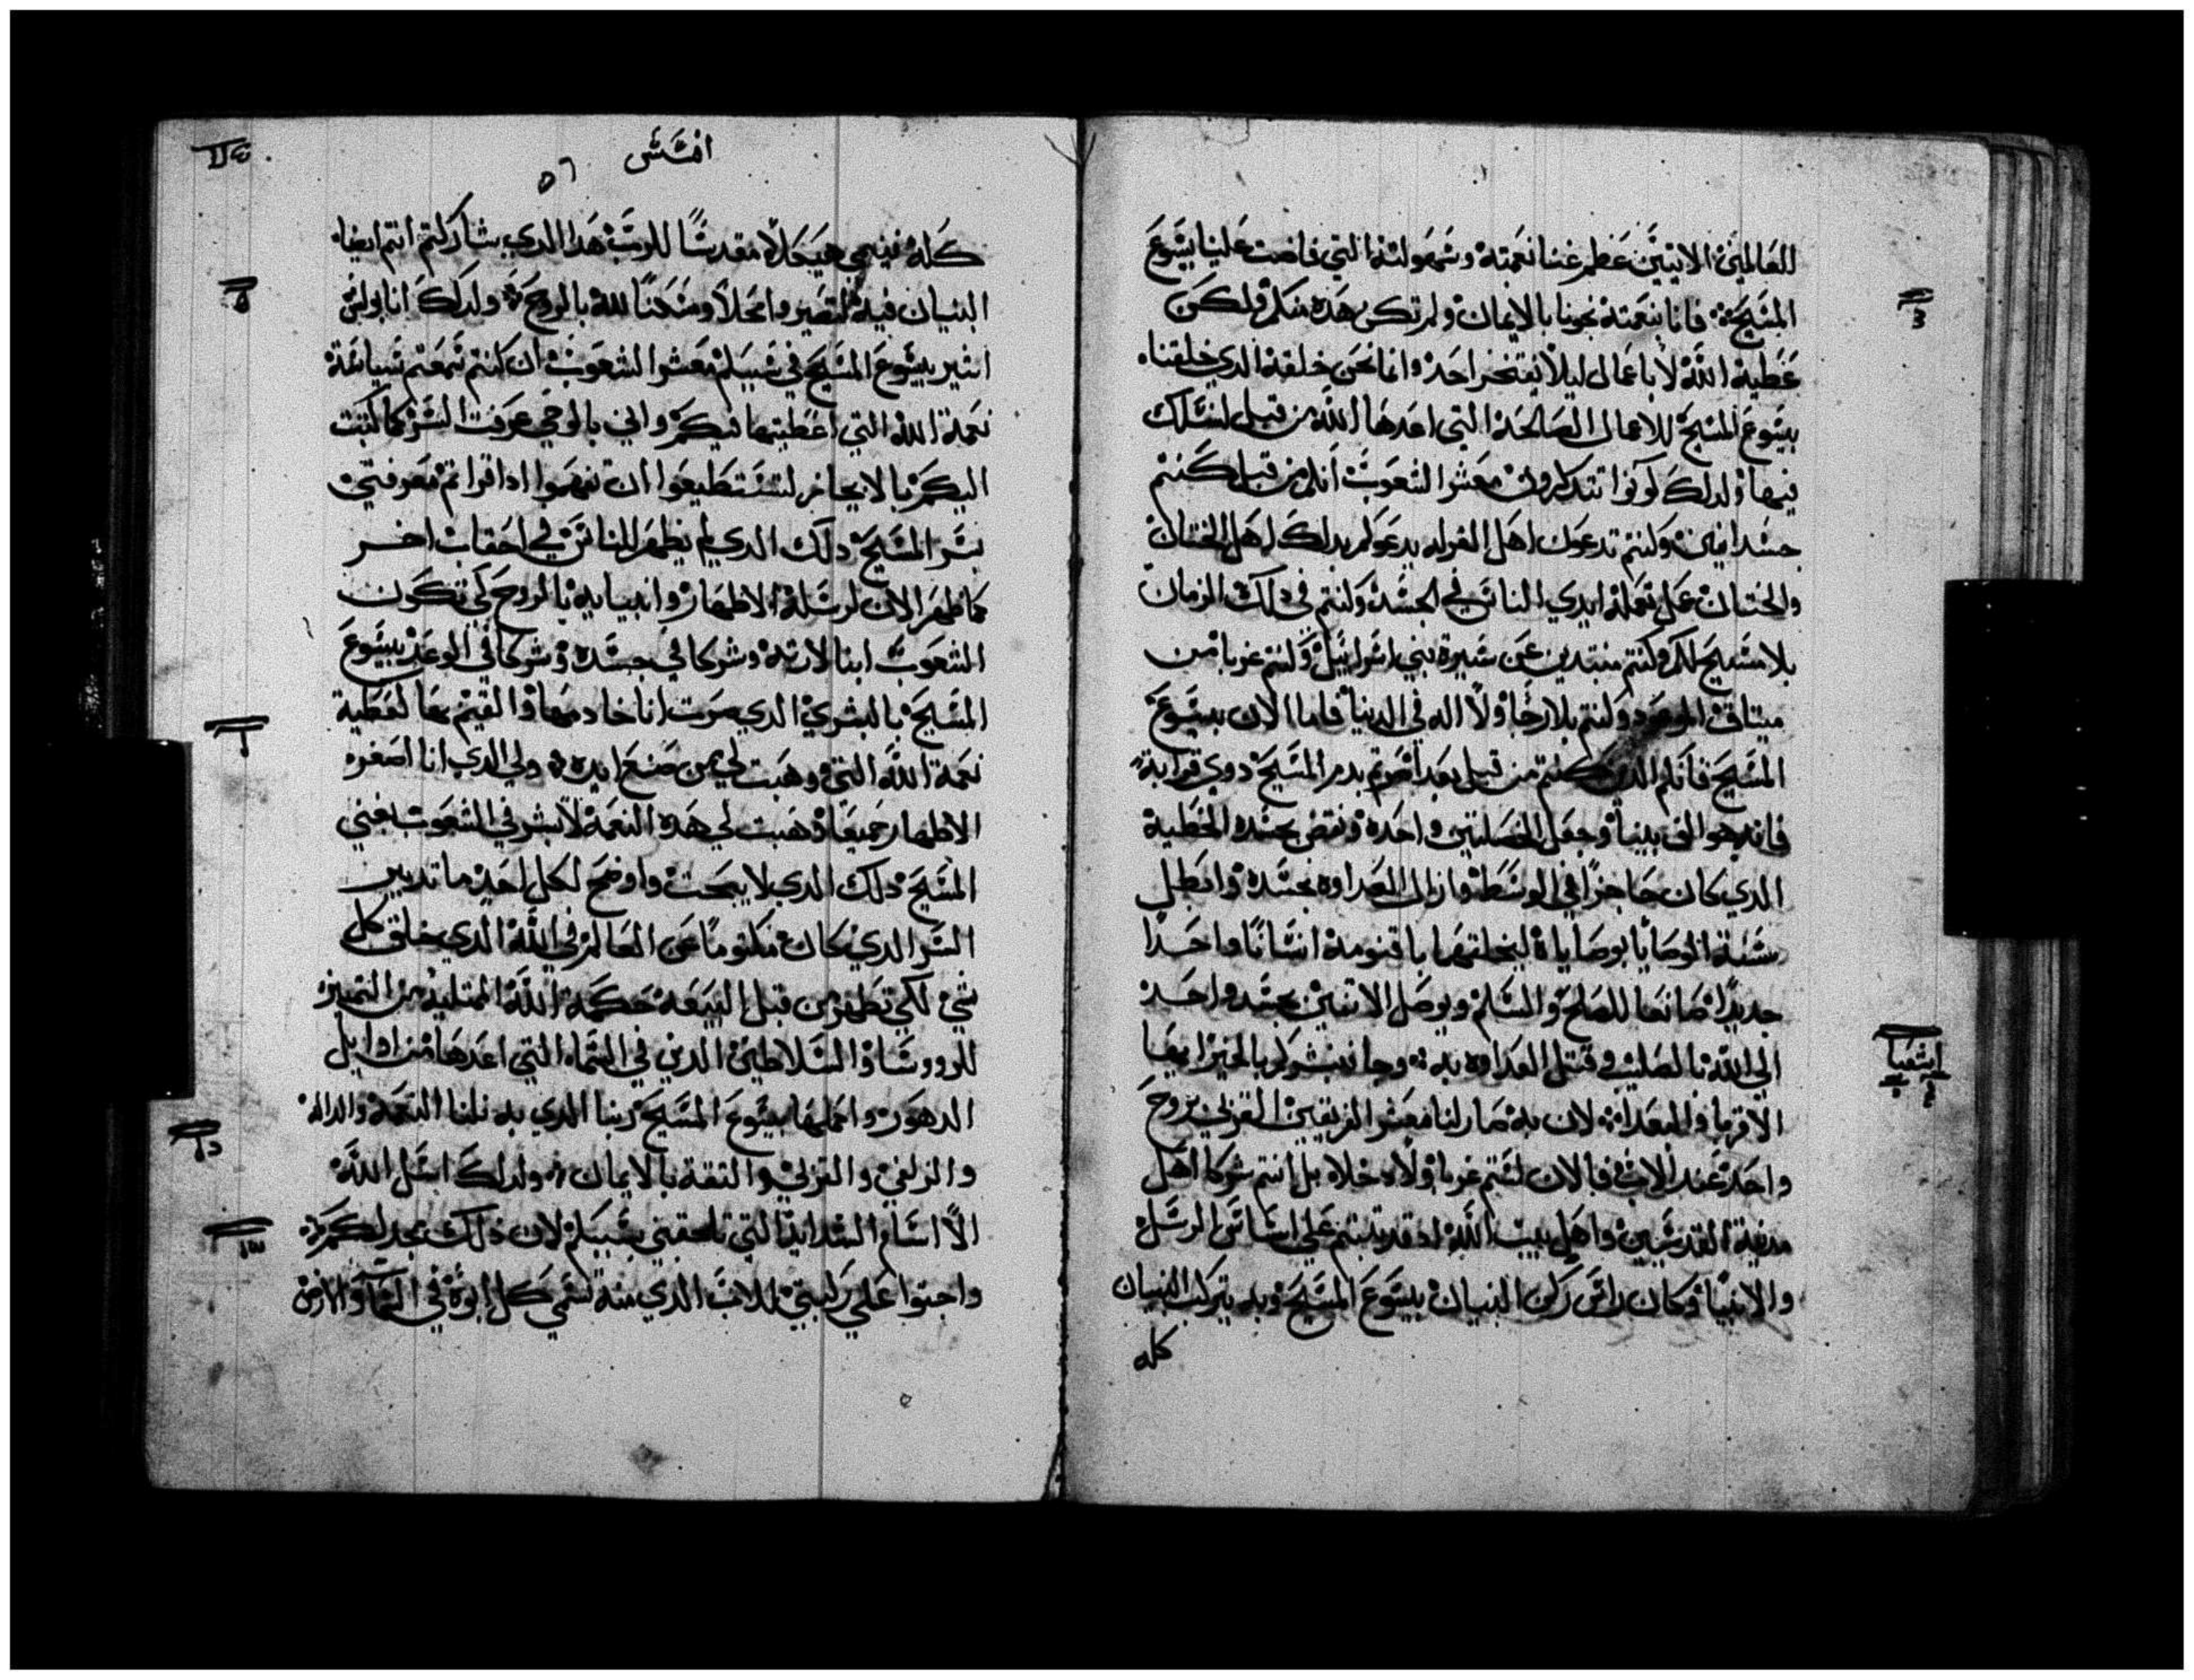 للعالمين الاتيين عظم غنا نعمته وسهولته التي فاضت علينا بيسوع
المسيح فاننا بنعمته نجونا بالايمان ولم تكن هذه منكم ولكن
عطية الله لا باعمال ليلا يفتخر احد وانما نحن خلقة الدي خلقنا
بيسوع المسيح للاعمال الصالحة التي اعدها الله من قبل لنسلك
فيها ولدلك كونوا تتدكرون معشر الشعوب انكم من قبل كنتم
جسدانيين وكنتم تدعون اهل الغرله يدعوكم بدلك اهل الختان
والختان عمل تعمله ايدي الناس في الجسد وكنتم في دلك الزمان
بلا مسيح لكم وكنتم مبتدين عن سيرة بني اسرائيل وكنتم غربا من
ميتاق الموعود وكنتم بلا رجا ولا اله في الدنيا فاما الان بيسوع
المسيح فانكم الدين كنتم من قبل بعدا صرتم بدم المسيح دوي قرابة
فانه هو الف بيننا وجعل الخصلتين واحدة ونقض بجسده الخطية
الدي كان حاجزا في الوسط وازال العداوه بجسده وابطل
سنة الوصايا بوصاياه ليخلقهما باقنومه انسانا واحدا
جديدا صانعا للصلح والسلم ويوصل الاتنين بجسد واحد
الي الله بالصليب وقتل العداوه به وجا فبشركم بالخير ايها
الاقربا والبعدا لان به صار لنا معشر الفريقين القربي بروح
واحد عند الاب فالان لستم غربا ولا دخلا بل انتم شركا اهل
مدينة القديسين واهل بيت الله اد قد بنيتم علي اساس الرسل
والانبيا وكان راس ركن البنيان يسوع المسيح وبه يتركب البنيان
كله
٣
اشعيا
افسس
٥٦
كله فينمي هيكلا مقدسا للرب هدا الدي بشاركتم انتم ايضا
البنيان فيه لتصيروا محلا ومسكنا لله بالروح ولدلك انا بولس
اسير يسوع المسيح في سببكم معشر الشعوب ان كنتم سمعتم بسياسة
نعمة الله التي اعطيتها فيكم واني بالوحي عرفت السر كما كتبت
اليكم بالايجاز لتستطيعوا ان تفهموا ادا قراتم معرفتي
بسر المسيح دلك الدي لم يظهر للناس في احقاب اخر
كما ظهر الان لرسله الاطهار وانبيايه بالروح كي تكون
الشعوب ابنا لارته وشركا في جسده وشركا في الوعد بيسوع
المسيح بالبشري الدي صرت انا خادمها والقيم بها لعطية
نعمة الله التي وهبت لي من صنع ايده ولي الدي انا اصغر
الاطهار جميعا وهبت لي هده النعمة لابشر في الشعوب بغني
المسيح دلك الدي لا يبحت واوضح لكل احد ما تدبير
السر الدي كان مكتوما عن العالم في الله الدي خلق كل
شي لكي تظهر من قبل البيعة حكمة الله الممتلية من التمييز
للروسا والسلاطين الدين في السماء التي اعدها من اوايل
الدهور واكملها بيسوع المسيح ربنا الدي به نلنا النعمة والداله
والزلفي والقربي والتقة بالايمان ولدلك اسل الله
الا اسام الشدايد التي تلحقني بسببكم لان دلك مجد لكم
واجتوا علي ركبتي للاب الدي منه تسمي كل ابوة في السما والارض